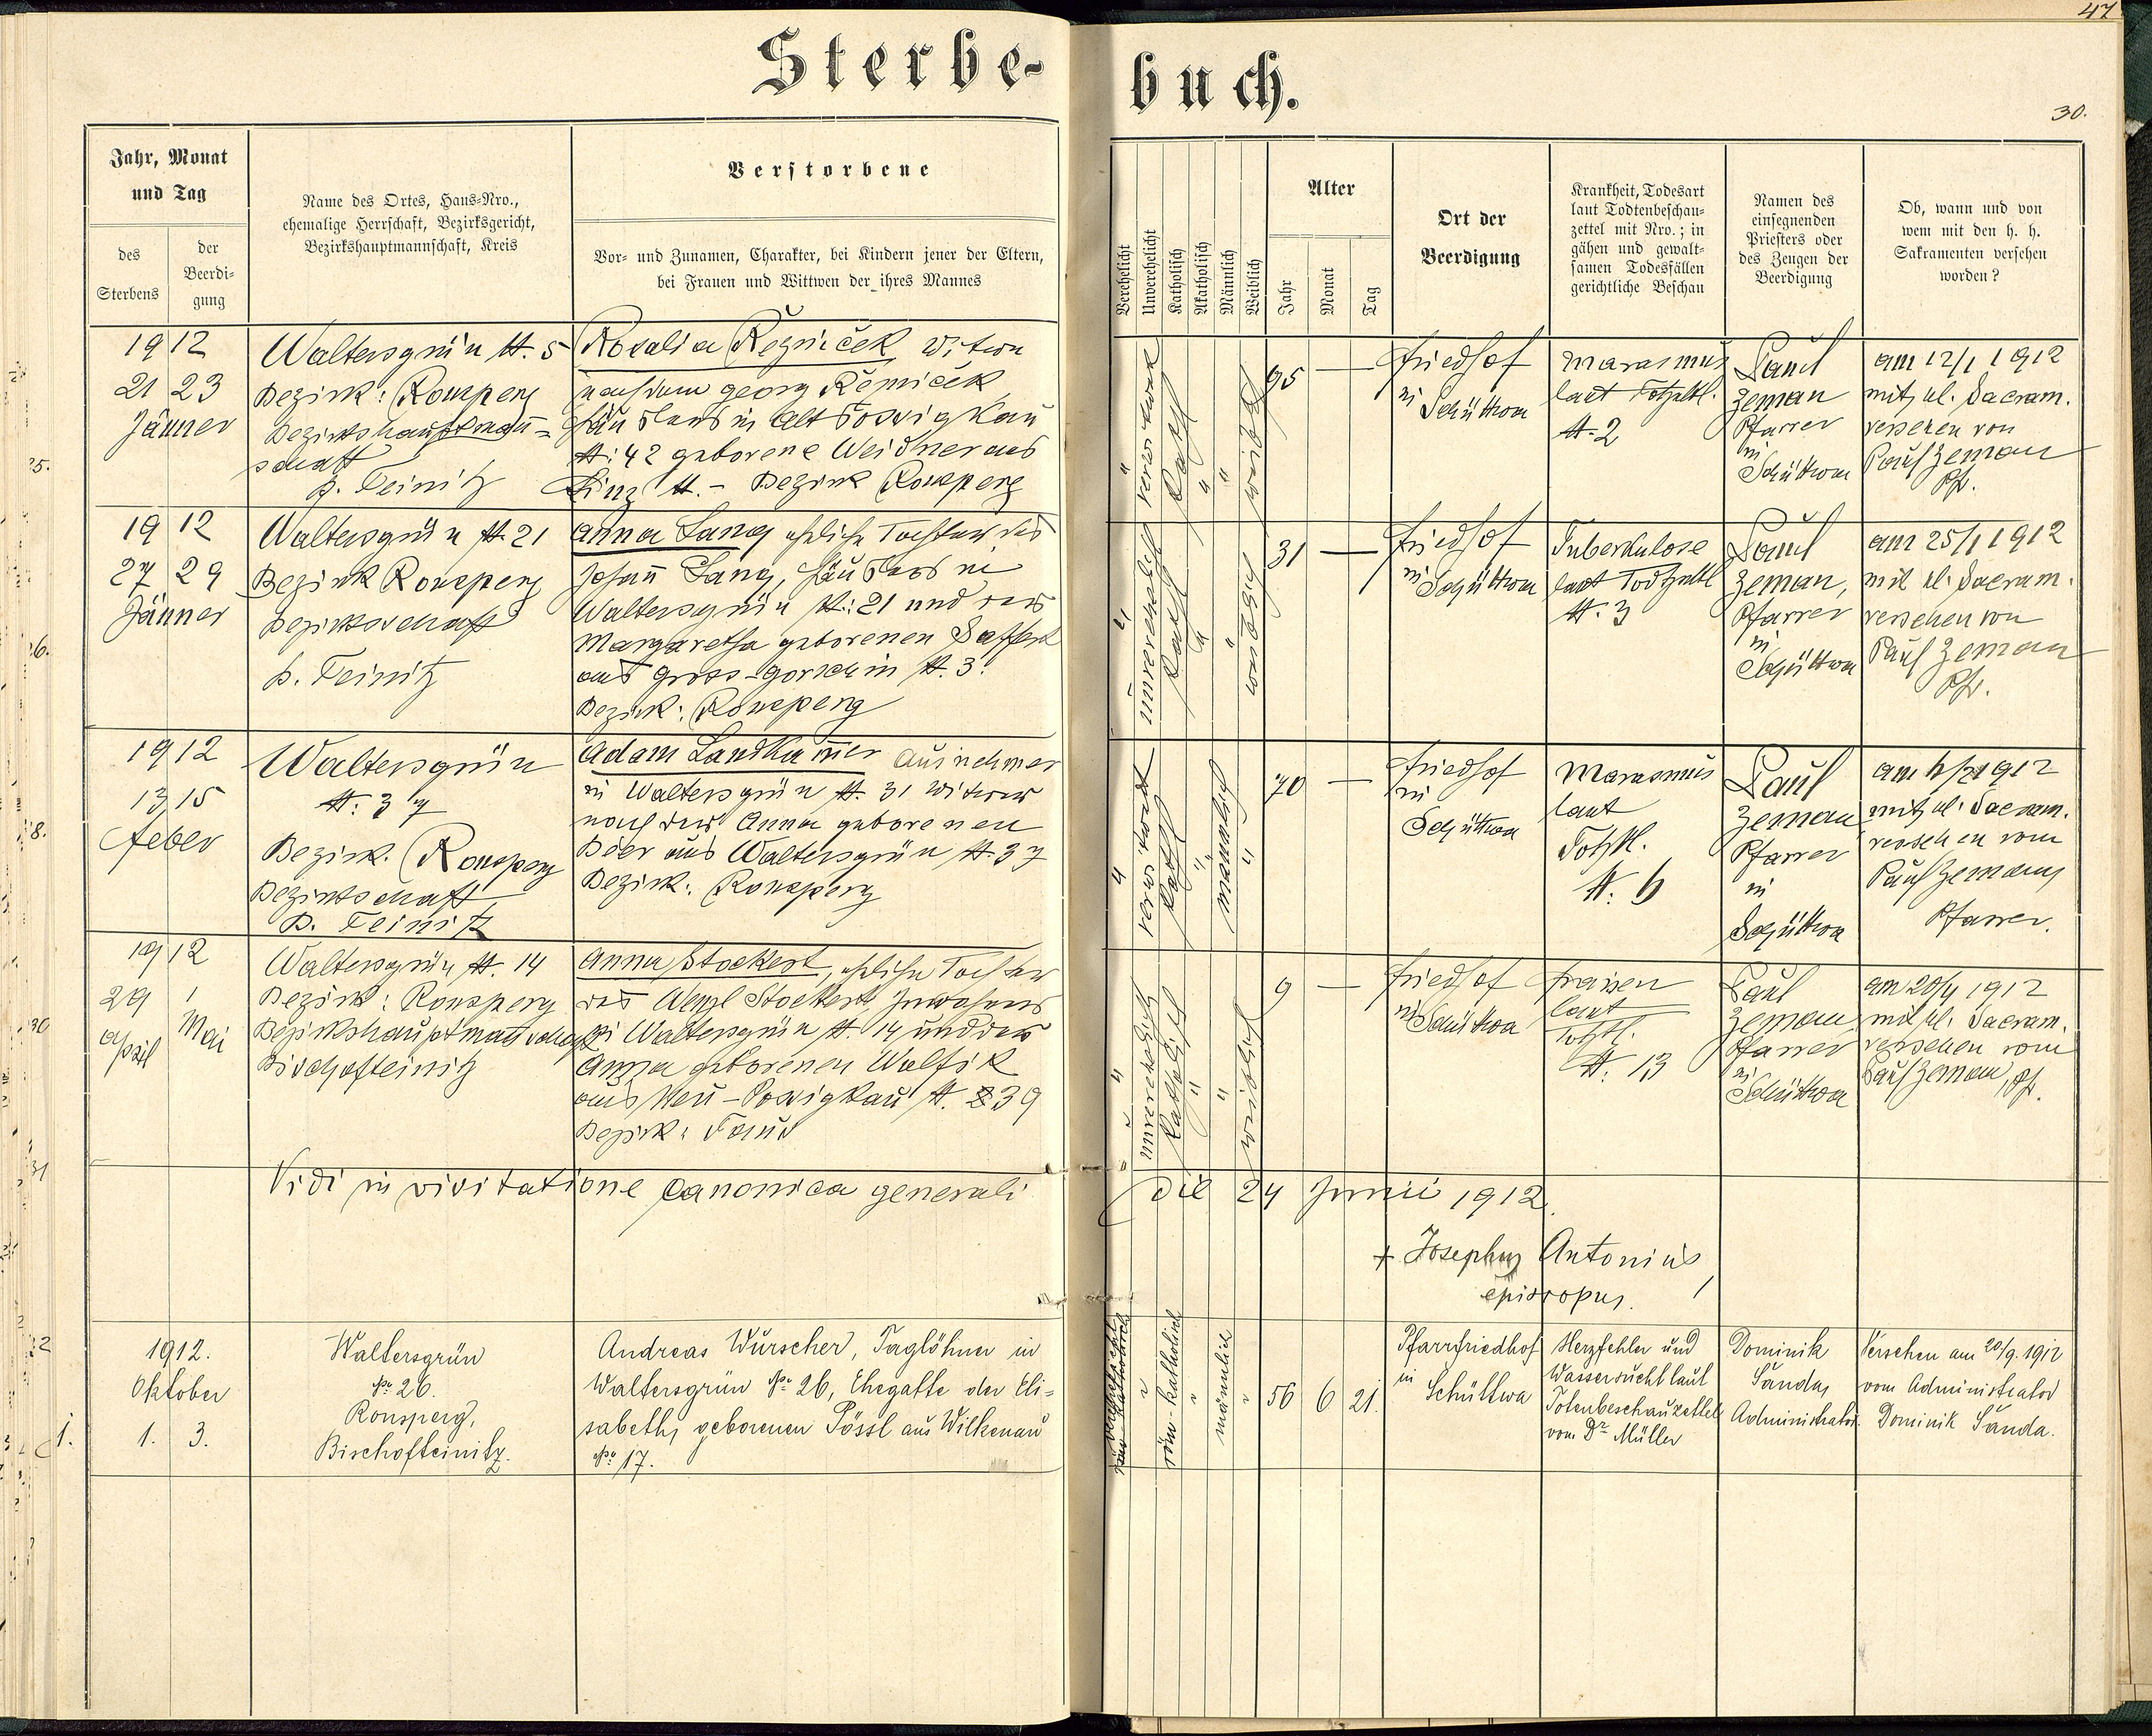 47
Sterbe-
buch.
30.
Jahr, Monat
und Tag
des
Sterbens
der
Beerdi-
gung
Name des Ortes, Haus-Nro.,
ehemalige Herrschaft, Bezirksgericht,
Bezirkshauptmannschaft, Kreis
Verstorbene
Vor- und Zunamen, Charakter, bei Kindern jener der Eltern,
bei Frauen und Wittwen der ihres Mannes
Verehelicht
Unverehelicht
Katholisch
Akatholisch
Männlich
Weiblich
Alter
Jahr
Monat
Tag
Ort der
Beerdigung
Krankheit, Todesart
laut Todtenbeschau-
zettel mit Nro.; in
gähen und gewalt-
samen Todesfällen
gerichtliche Beschau
Namen des
einsegnenden
Priesters oder
des Zeugen der
Beerdigung
Ob, wann und von
wem mit den h. h.
Sakramenten versehen
worden?
1912
21 23
Jänner
Waltersgrün N. 5
Bezirk: Ronsperg
Bezirkshauptman̄=
schaft
B. Teinitz
Rosalia Řezniček Witwe
nach dem Georg Řezniček
Häuslers in Alt Possigkau
N: 42 geborene Weidner aus
Linz N. - Bezirk Ronsperg
verwitwet
Kath
weiblich
95 —
Friedhof
in Schüttwa
Marasmus
laut Totzettl.
N. 2
Paul
Zeman
Pfarrer
in
Schüttwa
am 12/1 1912
mit hl. Sacram.
versehen von
Paul Zeman
Pfr.
1912
27 29
Jänner
Waltersgrün N. 21
Bezirk Ronsperg
Bezirkschaft
B. Teinitz
Anna Lang eheliche Tochter des
Johan̄ Lang, Häuslers in
Waltersgrün N.: 21 und der
Margaretha geborenen Saffert
aus Gross-Gorschin N. 3.
Bezirk: Ronsperg
unverehelicht
Kath
weiblich
31 —
Friedhof
in Schüttwa
Tuberkulose
laut Todtzettl
N. 3
Paul
Zeman,
Pfarrer
in
Schüttwa
am 25/1 1912
mit hl. Sacram.
versehen von
Paul Zeman
Pfr.
1912
13 15
Feber
Waltersgrün
N. 37
Bezirk. Ronsperg
Bezirkschaft
B. Teinitz
Adam Landkam̄er Ausnehmer
in Waltersgrün N. 31 Witwer
nach der Anna geborenen
Beer aus Waltersgrün N. 37
Bezirk: Ronsperg
verwitwet
Kath
mänlich
70 —
Friedhof
in
Schüttwa
Marasmus
laut
Totzttl.
N. 6
Paul
Zeman
Pfarrer
in
Schüttwa
1912
mit hl. Sacram.
versehen vom
Paul Zeman
Pfarrer.
1912
29 1
April Mai
Waltersgrün N. 14
Bezirk: Ronsperg
Bezirkshauptman̄schaft
Bischofteinitz
Anna Stockert, eheliche Tochter
des Wenzl Stockert Inwohners
in Waltersgrün N. 14 und der
Anna geborenen Wolfik
aus Neu-Possigkau N. 39
Bezirk: Taus
unverehelicht
katholisch
weiblich
9 —
Friedhof
in Schüttwa
Fraisen
laut
Totzttl.
N. 13
Paul
Zeman
Pfarrer
in
Schüttwa
am 20/4 1912
mit hl. Sacram.
versehen vom
Paul Zeman Pfr.
Vidi in visitatione canonica generali
die 24 Junii 1912.
+ Josephus Antonius,
episcopus.
1912.
Oktober
1. 3.
1.
Waltersgrün
No 26.
Ronsperg,
Bischofteinitz.
Andreas Würscher, Taglöhner in
Waltersgrün No 26, Ehegatte der Eli=
sabeth, geborenen Pössl aus Wilkenau
No 17.
röm-katholisch
männlich
56 6 21.
Pfarrfriedhof
in
Schüttwa
Herzfehler und
Wassersucht laut
Totenbeschauzettel
vom Dr Müller
Dominik
Šanda,
Administrator.
Versehen am 20/9. 1912
vom Administrator
Dominik Šanda.